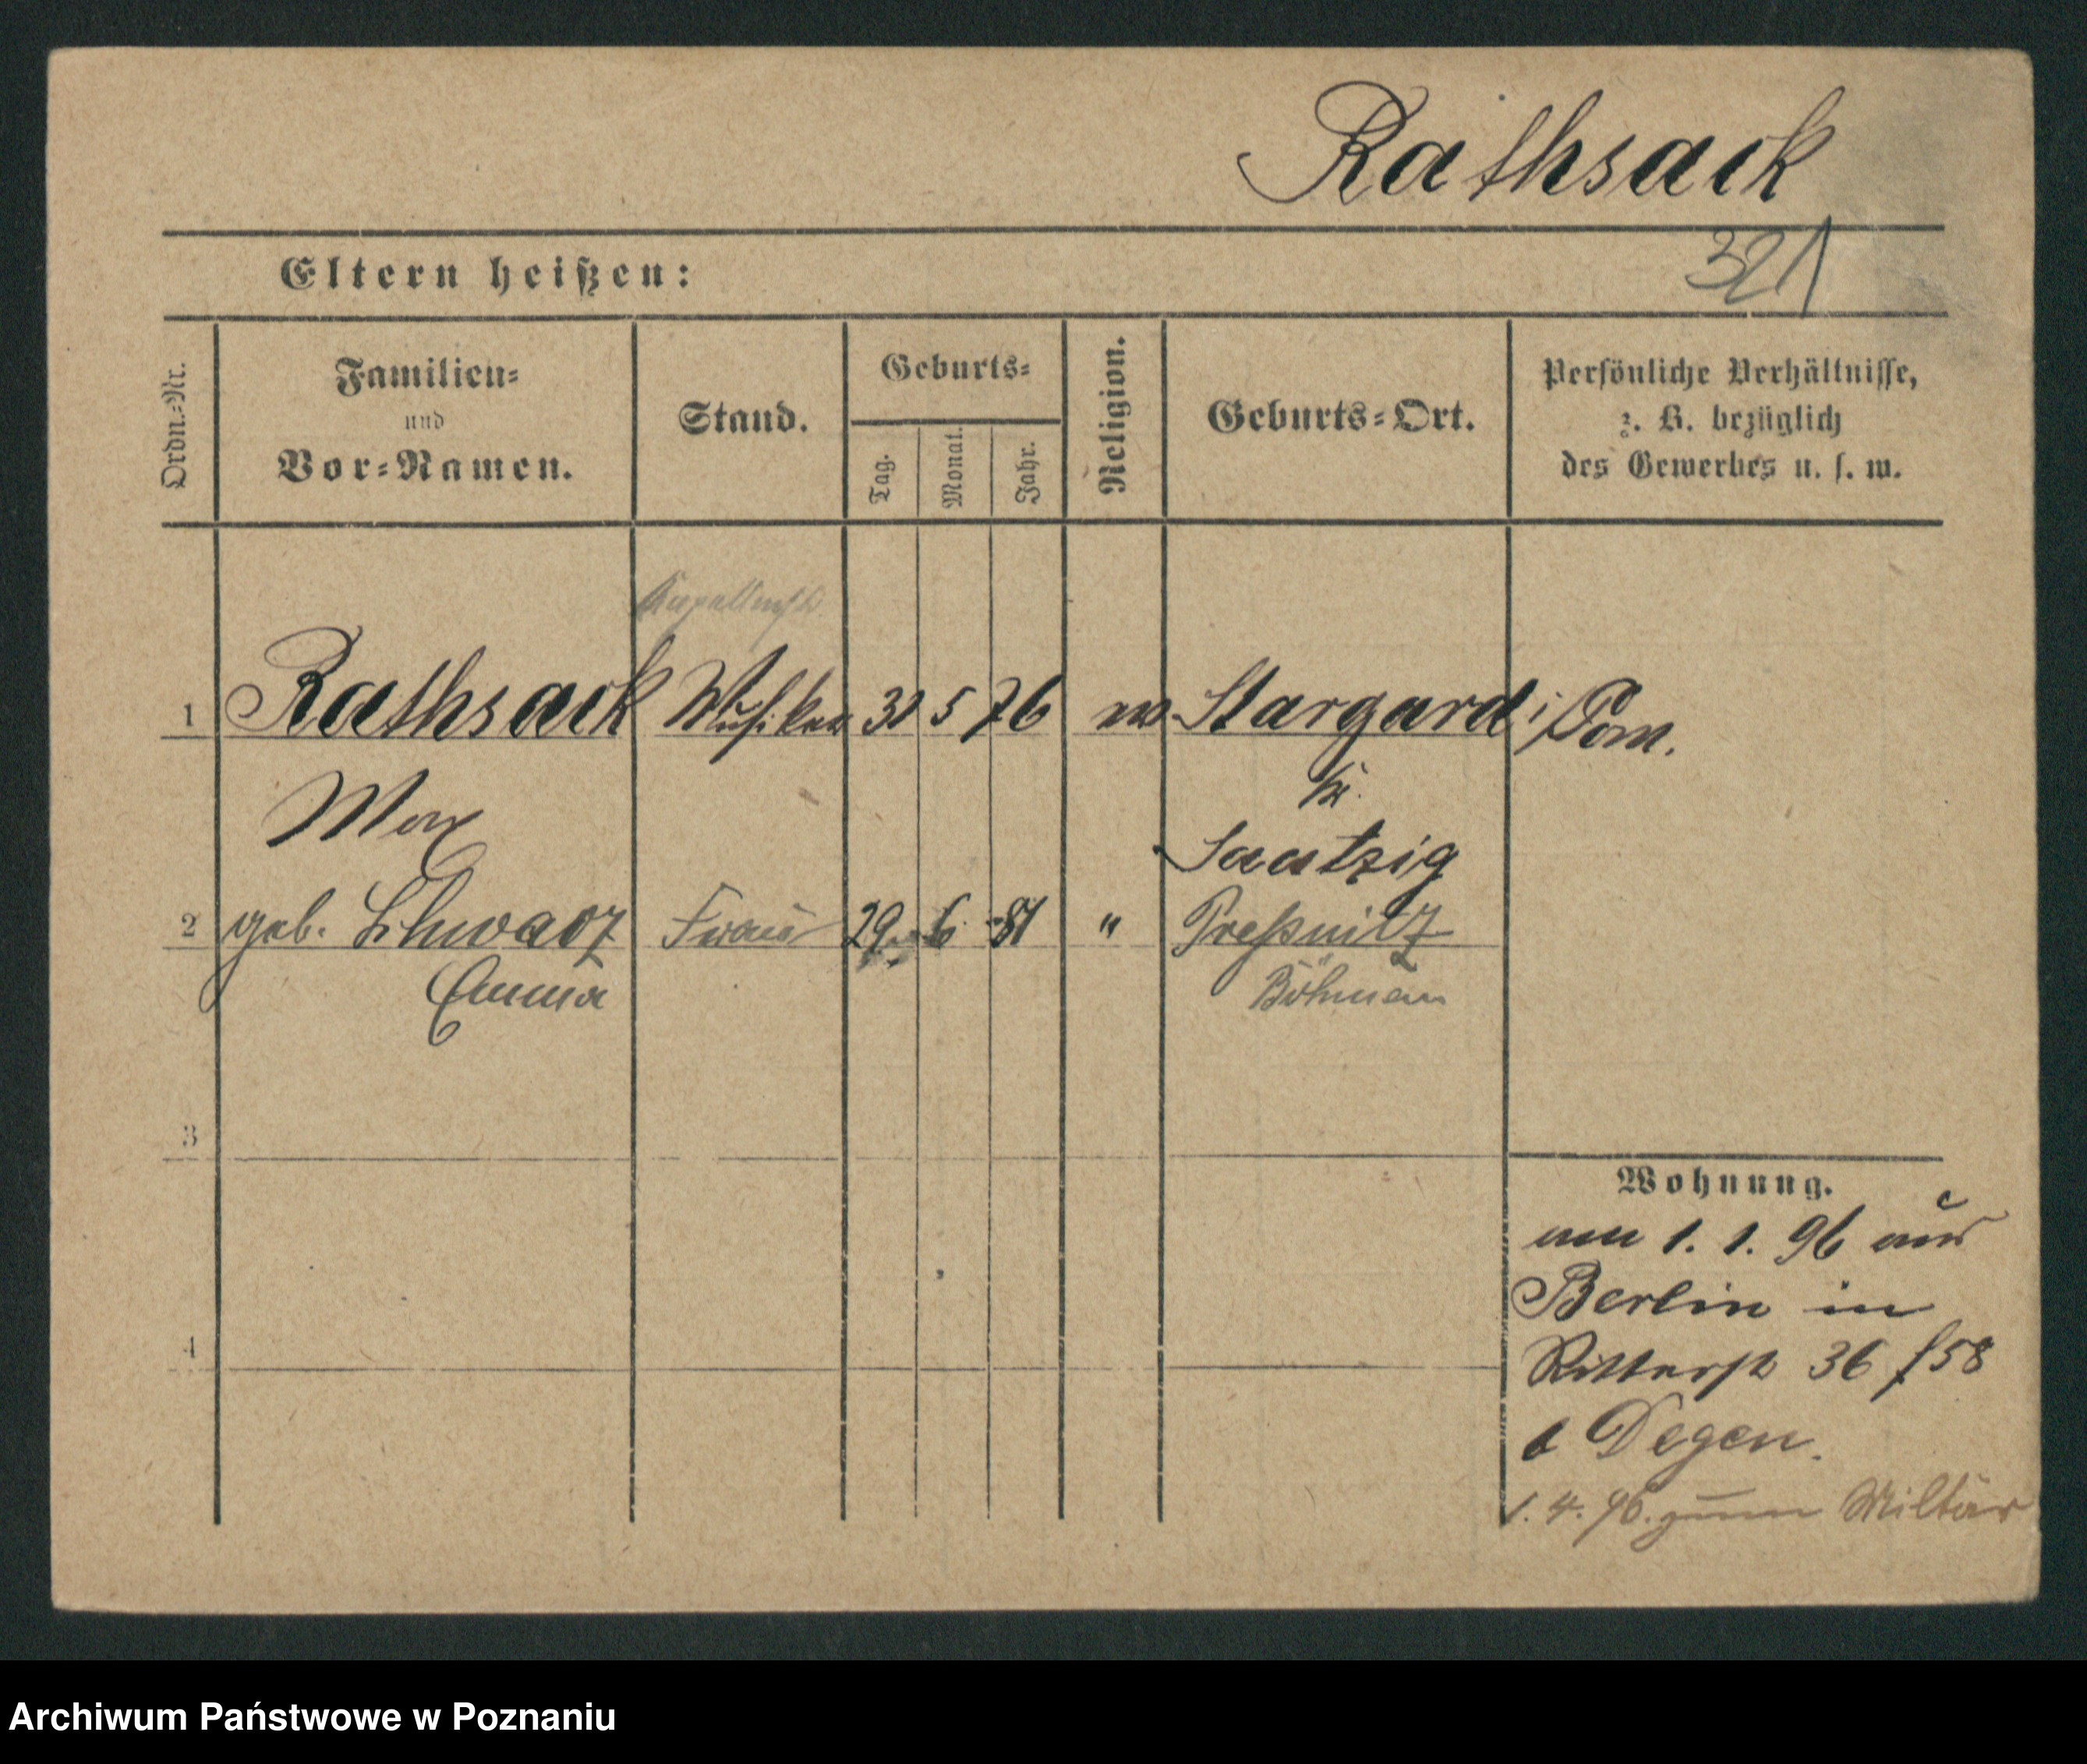 Rathsack
321
Eltern heißen:
Ordn.-Nr.
Familien-
und
Vor-Namen.
Stand.
Geburts-
Tag.
Monat.
Jahr.
Religion.
Geburts-Ort.
Persönliche Verhältnisse,
z. B. bezüglich
des Gewerbes u. s. w.
1 Rathsack Musiker 5 76 ev Stargard i/Pom.
Max
Kr.
Saatzig
2 geb. Schwarz Frau 29. 6. 81 " Preßnitz
Emma
Böhmen
3
4
Wohnung.
am 1. 1. 96 aus
Berlin in
Ritterstr 36
Degen.
1. 4. 96. zum Militär
Archiwum Państwowe w Poznaniu